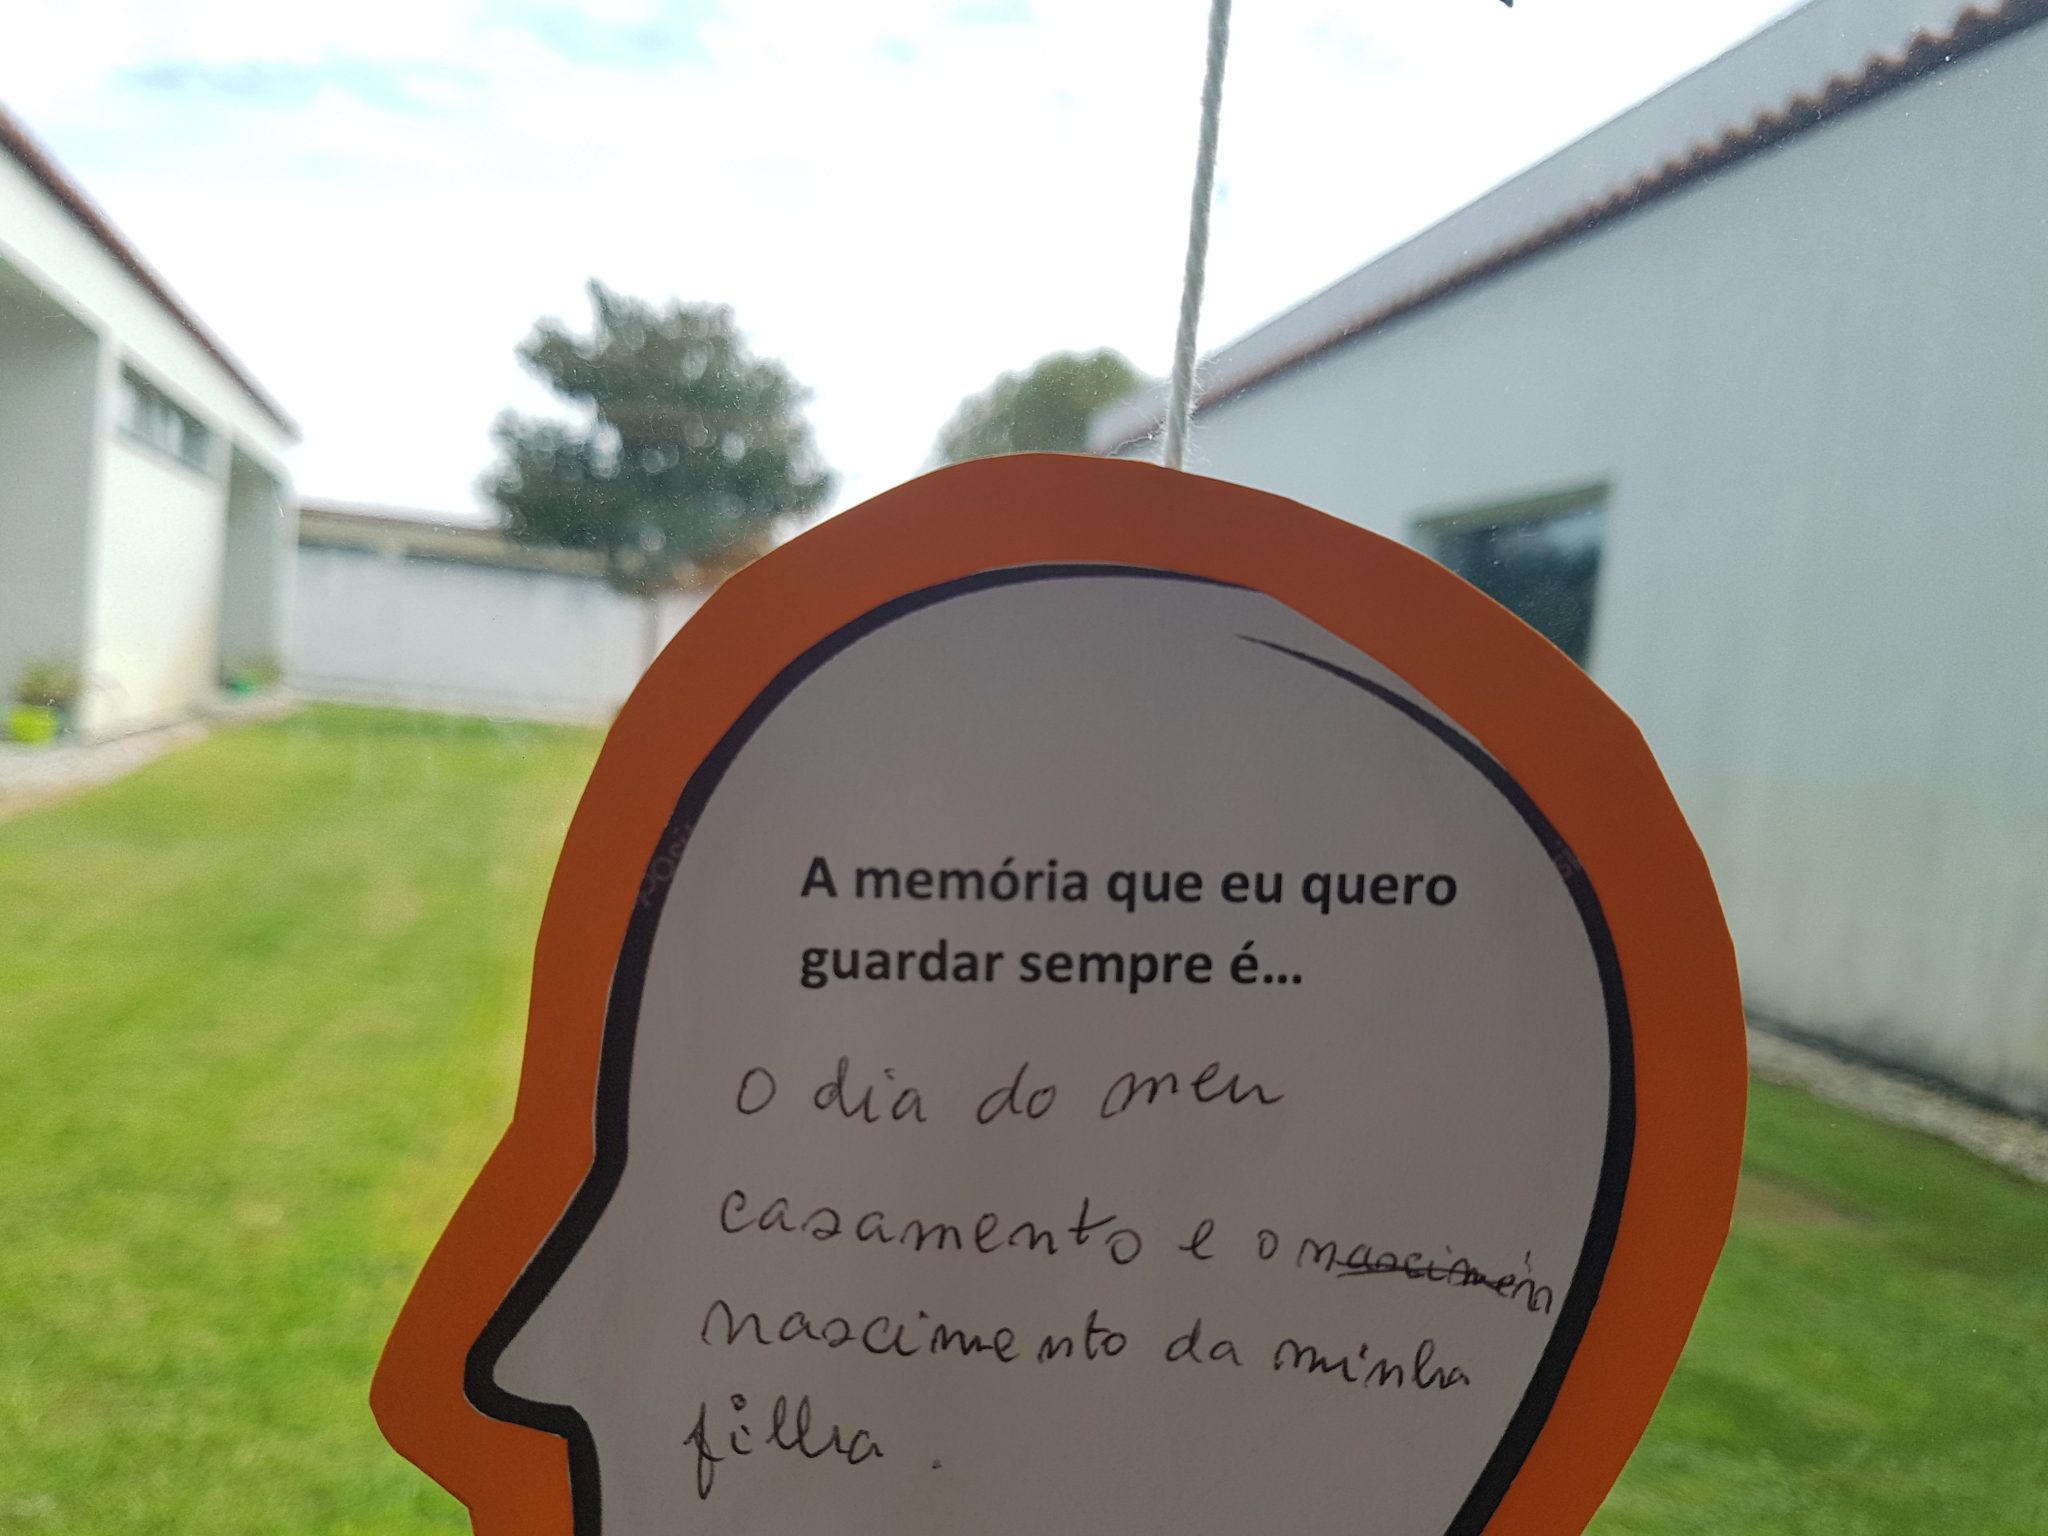 A memória que eu quero
guardar sempre é...
O dia do meu
casamento e o nascimen
nascimento da minha
filha.